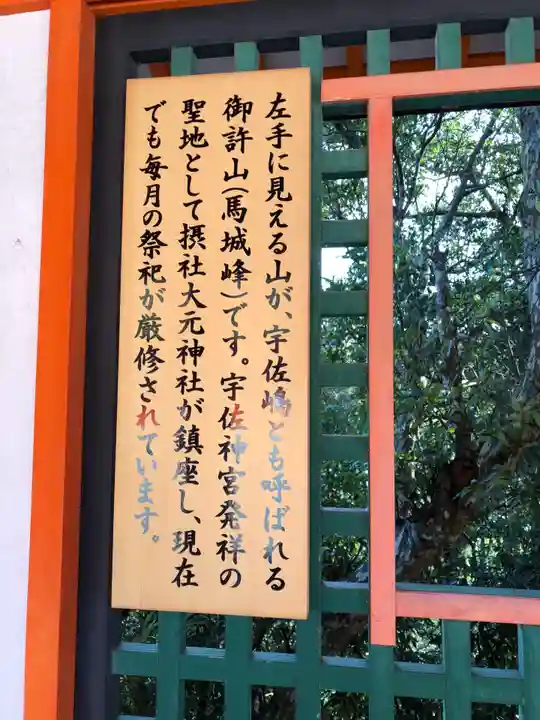 左手に見える山が、宇佐嶋とも呼ばれる
御許山(馬城峰)です。宇佐神宮発祥の
聖地として摂社大元神社が鎮座し、現在
でも毎月の祭祀が厳修されています。